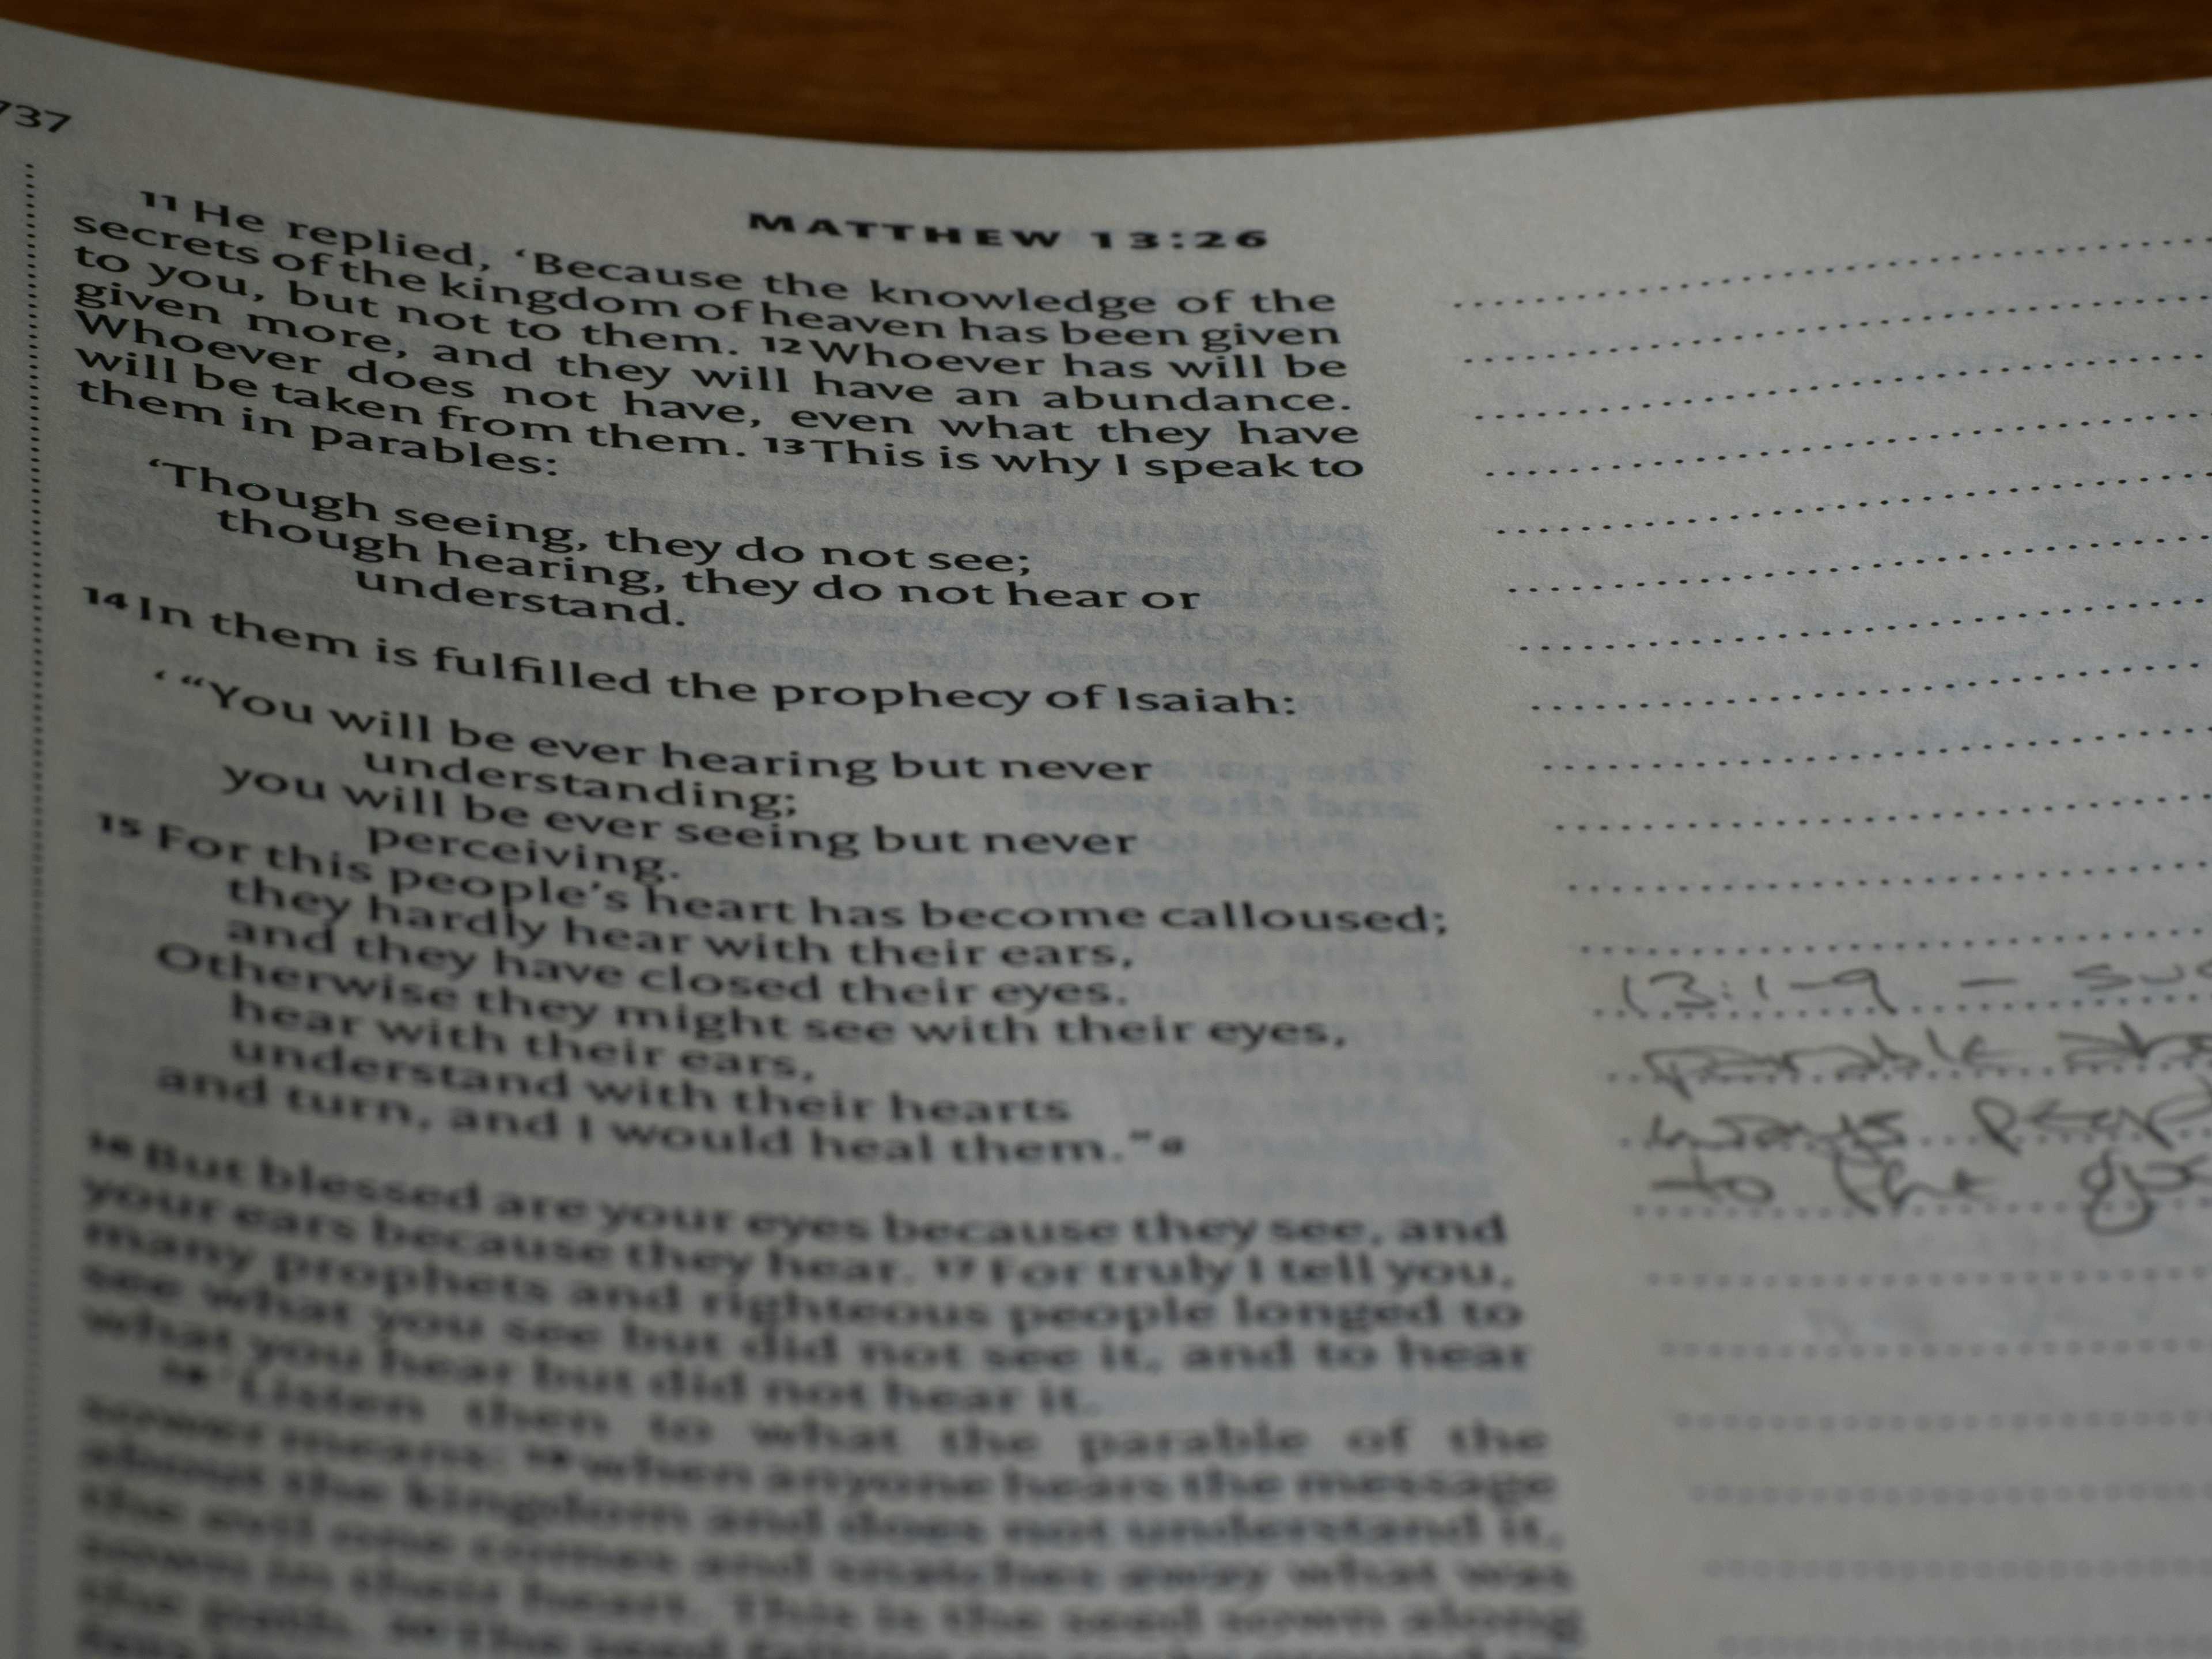 737
MATTHEW 13:26
11 He replied, ‘Because the knowledge of the
secrets of the kingdom of heaven has been given
to you, but not to them. 12 Whoever has will be
given more, and they will have an abundance.
Whoever does not have, even what they have
will be taken from them. 13 This is why I speak to
them in parables:
‘Though seeing, they do not see;
though hearing, they do not hear or
understand.
14 In them is fulfilled the prophecy of Isaiah:
‘ “You will be ever hearing but never
understanding;
you will be ever seeing but never
perceiving.
15 For this people’s heart has become calloused;
they hardly hear with their ears,
and they have closed their eyes.
Otherwise they might see with their eyes,
hear with their ears,
understand with their hearts
and turn, and I would heal them.” a
16 But blessed are your eyes because they see, and
your ears because they hear. 17 For truly I tell you,
many prophets and righteous people longed to
see what you see but did not see it, and to hear
what you hear but did not hear it.
18 ‘Listen then to what the parable of the
sower means: 19 when anyone hears the message
about the kingdom and does not understand it,
the evil one comes and snatches away what was
sown in their heart. This is the seed sown along
the path. 20 The seed falling
13:1-9 –
parable
ways
to the